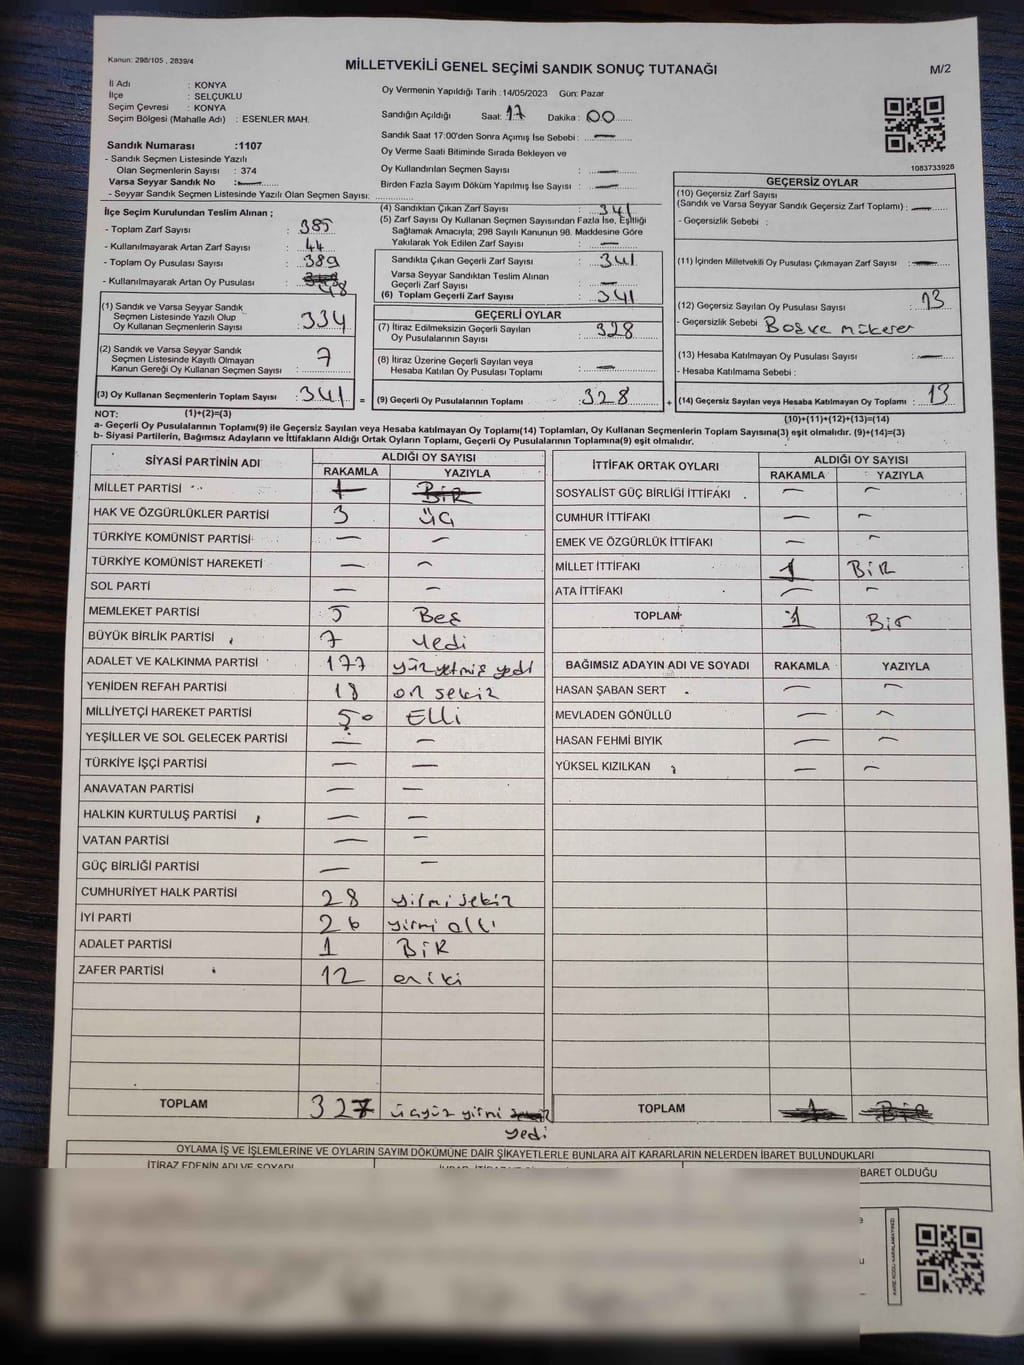 Kanun: 298/105 , 2839/4
MİLLETVEKİLİ GENEL SEÇİMİ SANDIK SONUÇ TUTANAĞI
M/2
İl Adı : KONYA
İlçe : SELÇUKLU
Seçim Çevresi : KONYA
Seçim Bölgesi (Mahalle Adı) : ESENLER MAH.
Oy Vermenin Yapıldığı Tarih :14/05/2023 Gün: Pazar
Sandığın Açıldığı Saat: 17 Dakika : 00
Sandık Saat 17:00'den Sonra Açımış İse Sebebi : —
Oy Verme Saati Bitiminde Sırada Bekleyen ve
Oy Kullandırılan Seçmen Sayısı : —
Birden Fazla Sayım Döküm Yapılmış İse Sayısı : —
1083733928
Sandık Numarası :1107
- Sandık Seçmen Listesinde Yazılı
Olan Seçmenlerin Sayısı : 374
Varsa Seyyar Sandık No : —
- Seyyar Sandık Seçmen Listesinde Yazılı Olan Seçmen Sayısı:
İlçe Seçim Kurulundan Teslim Alınan ;
- Toplam Zarf Sayısı : 385
- Kullanılmayarak Artan Zarf Sayısı : 44
- Toplam Oy Pusulası Sayısı : 389
- Kullanılmayarak Artan Oy Pusulası : 48
(1) Sandık ve Varsa Seyyar Sandık
Seçmen Listesinde Yazılı Olup
Oy Kullanan Seçmenlerin Sayısı : 334
(2) Sandık ve Varsa Seyyar Sandık
Seçmen Listesinde Kayıtlı Olmayan
Kanun Gereği Oy Kullanan Seçmen Sayısı : 7
(3) Oy Kullanan Seçmenlerin Toplam Sayısı : 341 =
(4) Sandıktan Çıkan Zarf Sayısı : 341
(5) Zarf Sayısı Oy Kullanan Seçmen Sayısından Fazla İse, Eşitliği
Sağlamak Amacıyla; 298 Sayılı Kanunun 98. Maddesine Göre
Yakılarak Yok Edilen Zarf Sayısı : —
Sandıkta Çıkan Geçerli Zarf Sayısı : 341
Varsa Seyyar Sandıktan Teslim Alınan
Geçerli Zarf Sayısı : —
(6) Toplam Geçerli Zarf Sayısı : 341
GEÇERLİ OYLAR
(7) İtiraz Edilmeksizin Geçerli Sayılan
Oy Pusulalarının Sayısı : 328
(8) İtiraz Üzerine Geçerli Sayılan veya
Hesaba Katılan Oy Pusulası Toplamı : —
(9) Geçerli Oy Pusulalarının Toplamı : 328 +
GEÇERSİZ OYLAR
(10) Geçersiz Zarf Sayısı
(Sandık ve Varsa Seyyar Sandık Geçersiz Zarf Toplamı) : —
- Geçersizlik Sebebi :
(11) İçinden Milletvekili Oy Pusulası Çıkmayan Zarf Sayısı : —
(12) Geçersiz Sayılan Oy Pusulası Sayısı : 13
- Geçersizlik Sebebi Boş ve mükerer
(13) Hesaba Katılmayan Oy Pusulası Sayısı : —
- Hesaba Katılmama Sebebi :
(14) Geçersiz Sayılan veya Hesaba Katılmayan Oy Toplamı : 13
NOT: (1)+(2)=(3) (10)+(11)+(12)+(13)=(14)
a- Geçerli Oy Pusulalarının Toplamı(9) ile Geçersiz Sayılan veya Hesaba katılmayan Oy Toplamı(14) Toplamları, Oy Kullanan Seçmenlerin Toplam Sayısına(3) eşit olmalıdır. (9)+(14)=(3)
b- Siyasi Partilerin, Bağımsız Adayların ve İttifakların Aldığı Ortak Oyların Toplamı, Geçerli Oy Pusulalarının Toplamına(9) eşit olmalıdır.
SİYASİ PARTİNİN ADI ALDIĞI OY SAYISI
RAKAMLA YAZIYLA
MİLLET PARTİSİ 1 BİR
HAK VE ÖZGÜRLÜKLER PARTİSİ 3 üç
TÜRKİYE KOMÜNİST PARTİSİ — —
TÜRKİYE KOMÜNİST HAREKETİ — —
SOL PARTİ — —
MEMLEKET PARTİSİ 5 Beş
BÜYÜK BİRLİK PARTİSİ 7 yedi
ADALET VE KALKINMA PARTİSİ 177 yüz yetmiş yedi
YENİDEN REFAH PARTİSİ 18 on sekiz
MİLLİYETÇİ HAREKET PARTİSİ 50 ELLİ
YEŞİLLER VE SOL GELECEK PARTİSİ — —
TÜRKİYE İŞÇİ PARTİSİ — —
ANAVATAN PARTİSİ — —
HALKIN KURTULUŞ PARTİSİ — —
VATAN PARTİSİ — —
GÜÇ BİRLİĞİ PARTİSİ — —
CUMHURİYET HALK PARTİSİ 28 yirmi sekiz
İYİ PARTİ 26 yirmi altı
ADALET PARTİSİ 1 BİR
ZAFER PARTİSİ 12 on iki
TOPLAM 327 üçyüz yirmi yedi
İTTİFAK ORTAK OYLARI ALDIĞI OY SAYISI
RAKAMLA YAZIYLA
SOSYALİST GÜÇ BİRLİĞİ İTTİFAKI — —
CUMHUR İTTİFAKI — —
EMEK VE ÖZGÜRLÜK İTTİFAKI — —
MİLLET İTTİFAKI 1 BİR
ATA İTTİFAKI — —
TOPLAM 1 Bir
BAĞIMSIZ ADAYIN ADI VE SOYADI RAKAMLA YAZIYLA
HASAN ŞABAN SERT — —
MEVLADEN GÖNÜLLÜ — —
HASAN FEHMİ BIYIK — —
YÜKSEL KIZILKAN — —
TOPLAM 1 BİR
OYLAMA İŞ VE İŞLEMLERİNE VE OYLARIN SAYIM DÖKÜMÜNE DAİR ŞİKAYETLERLE BUNLARA AİT KARARLARIN NELERDEN İBARET BULUNDUKLARI
İTİRAZ EDENİN ADI VE SOYADI
BARET OLDUĞU